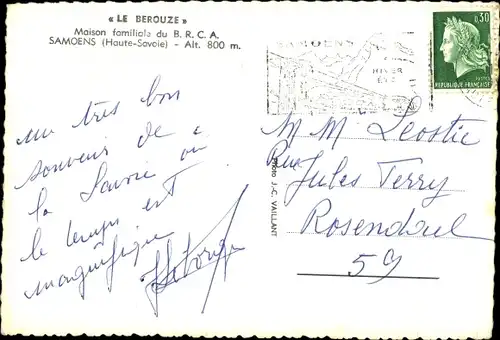 « LE BEROUZE »
Maison familiale du B. R. C. A.
SAMOENS (Haute-Savoie) - Alt. 800 m.
SAMOENS
HIVER
ETE
0,30
REPUBLIQUE FRANÇAISE
un très bon
souvenir de
la Savoie où
le temps est
magnifique
M M Leostic
Rue Jules Ferry
Rosendael
59
Photo J.-C. VAILLANT